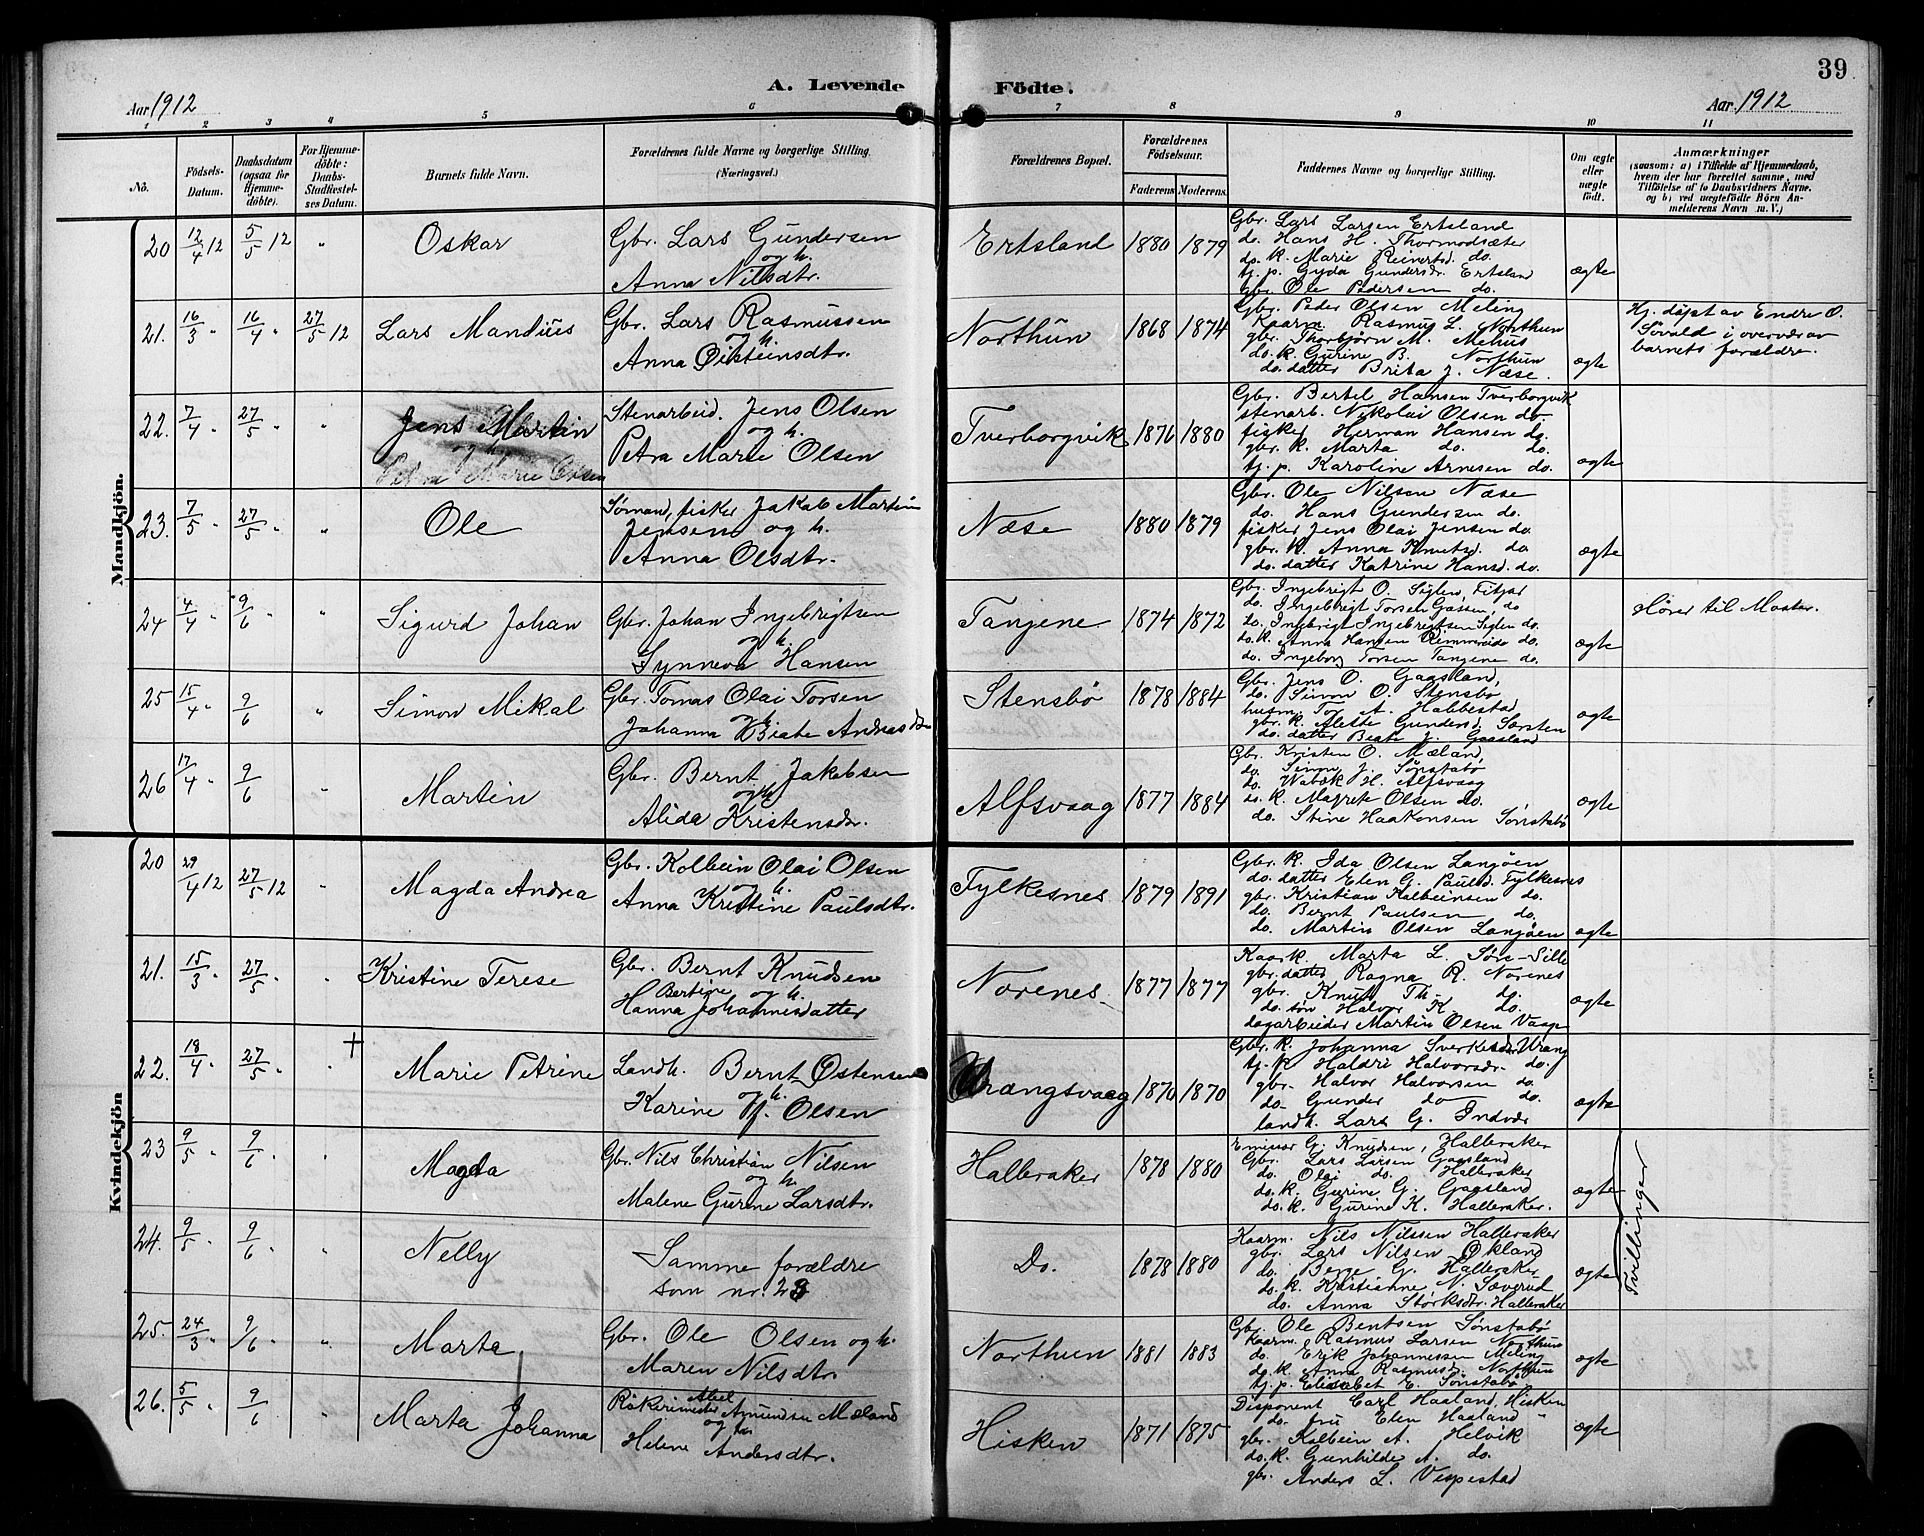 39
A. Levende Födte.
Aar 1912
Aar 1912
1 2 3 4 5 6 7 8 9 10 11
No.
Födsels-Datum.
Daabsdatum (ogsaa for Hjemme-döbte).
For Hjemme-döbte: Daabs-Stadfæstel-ses Datum.
Barnets fulde Navn.
Forældrenes fulde Navne og borgerlige Stilling.
(Næringsvei.)
Forældrenes Bopæl.
Forældrenes Födselsaar.
Faderens Moderens
Faddernes Navne og borgerlige Stilling.
Om ægte eller uægte födt.
Anmærkninger
(saasom: a) i Tilfælde af Hjemmedaab, hvem der har forrettet samme, med Tilföielse af to Daabsvidners Navne. og b) ved uægtefödte Börn An-melderens Navn m. V.)
Mandkjön.
20 12/4 12 5/5 12 " Oskar
Gbr. Lars Gundersen
og h.
Anna Nilsdtr.
Ertsland 1880 1879
Gbr. Lars Larsen Ertsland
do. Hans H. Thormodsæter
do. k. Marie Reinertsd. do.
tj. p. Gyda Gundersdr. Ertsland
Gbr. Ole Pedersen do.
ægte
21. 16/3 " 16/4 " 27/5 12 Lars Mandius
Gbr. Lars Rasmussen
og h.
Anna Øisteinsdtr.
Northun 1868 1874
Gbr. Peder Olsen Meling
Kaarm. Rasmus L. Northun
gbr. Thorbjørn M. Mehus
do. k. Gurine B. Northun
do. datter Brita J. Næse.
ægte
Hj. døpt av Endre O.
Søvald i overvær av
barnets forældre.
22. 7/4 " 27/5 " " Jens Martin
og h.
Petra Marie Olsen
Stenarbeid. Jens Olsen
og h.
Petra Marie Olsen
Tverborgvik 1876 1880
Gbr. Bertel Hansen Tverborgvik
stenarb. Nikolai Olsen do.
fisker Herman Hansen do.
gbr. k. Marta do. do.
tj. p. Karoline Arnesen do.
ægte
23. 7/5 " 27/5 " " Ole
Sømand, fisker Jakob Martin
Jensen og h.
Anna Olsdtr.
Næse 1880 1879
Gbr. Ole Nilsen Næse
do. Hans Gundersen do.
fisker Jens Olai Jensen do.
gbr. k. Anna Knutsd. do
do. datter Katrine Hansd. do.
ægte
24 4/4 " 9/6 " " Sigurd Johan
Gbr. Johan Ingebrigtsen
og h.
Synneva Hansen
Tangene 1874 1872
Gbr. Ingebrigt O. Siglen, Fitjar
do. Ingebrigt Torsen Gaasen, do
do. Ingebrigt Ingebrigtsen Siglen do.
do. k. Anna Hansen Rimmereide do.
do. Ingeborg Torsen Tangene do.
ægte
Hører til Moster.
25 15/4 " 9/6 " Simon Mikal
Gbr. Tomas Olai Torsen
og h.
Johanna Beate Andreasdtr.
Stensbø 1878 1884
Gbr. Jens O. Gaasland,
do. Simon O. Stensbø
husm. Tor A. Habbestad
gbr. k. Aleste Gundersd. Sørsten
do. datter Beate J. Gaasland
ægte
26 17/4 " 9/6 " Martin
Gbr. Bernt Jakobsen
og h.
Alida Kristensdr.
Alfsvaag 1877 1884
Gbr. Kristen O. Mæland
do. Simon J. Sønstabø
do. H. Alfsvaag
do. k. Magrete Olsen do.
do. Stine Haakonsen Sønstabø
ægte
Kvindekjön
20 29/4 12 27/5 12 " Magda Andrea
Gbr. Kolbein Olai Olsen
og h.
Anna Kristine Paulsdtr.
Fylkesnes 1879 1891
Gbr. k. Ida Olsen Langøen
do. datter Elen G. Paulsd. Fylkesnes
gbr. Kristian Kolbeinsen do.
do. Bernt Paulsen do.
do. Martin Olsen Langøen
ægte
21. 15/3 " 27/5 " " Kristine Terese
Gbr. Bernt Knudsen
Bertine og h.
Hanna Johannesdatter
Norenes 1877 1877
Kaark. Marta L. Søre-Sille
gbr. datter Ragna R. Norenes
gbr. Knut Th. do.
do. søn Halvor K. do.
dagarbeider Martin Olsen Vaage
ægte
22. 18/4 " 27/5 " " + Marie Petrine
Landh. Bernt Østensen
og h.
Karine J. Olsen
Vrangsvaag 1870 1870
Gbr. k. Johanna Sverkesdr. Vrang
tj. p. Haldri Halvorsdr. do.
gbr. Halvor Halvorsen do.
do. Gunder do do.
landh. Lars G. Indvær
ægte
23 9/5 " 9/6 " " Magda
Gbr. Nils Christian Nilsen
og h.
Malene Gurine Larsdtr.
Halleraker 1878 1880
G. Knudsen, Halleraker
Gbr. Lars Larsen Gaasland
do. Olai do. Halleraker
do. k. Gurine G. Gaasland
do. k. Gurine K. Halleraker.
ægte
Tvillinger
24. 9/5 " 9/6 " " Nelly
Samme forældre
som nr. 23
Do. 1878 1880
Kaarm. Nils Nilssen Halleraker
gbr. Lars Nilsen Økland
do. Berge G. Halleraker
do. k. Kristianne N. Søverud
do. Anna Størksdtr. Halleraker
ægte
25. 24/3 " 9/6 " " Marta
Gbr. Ole Olsen og h.
Maren Nilsdtr.
Northun 1881 1883
Gbr. Ole Bentsen Sønstabø
Kaarm. Rasmus Larsen Northun
do. Erik Johannessen Meling
do. k. Anna Rasmusdr. Northun
tj. p. Elisabet E. Sønstabø
ægte
26. 5/5 " 9/6 " Marta Johanna
Røkerimester Aksel Amundsen Mæland
og h.
Helene Andersdtr.
Hisken 1871 1875
Disponent Carl Haaland, Hisken
do. fru Elen Haaland "
gbr. Kolbein A. Helvik
do. k. Gunhilde A. do.
gbr. Anders L. Vespestad
ægte